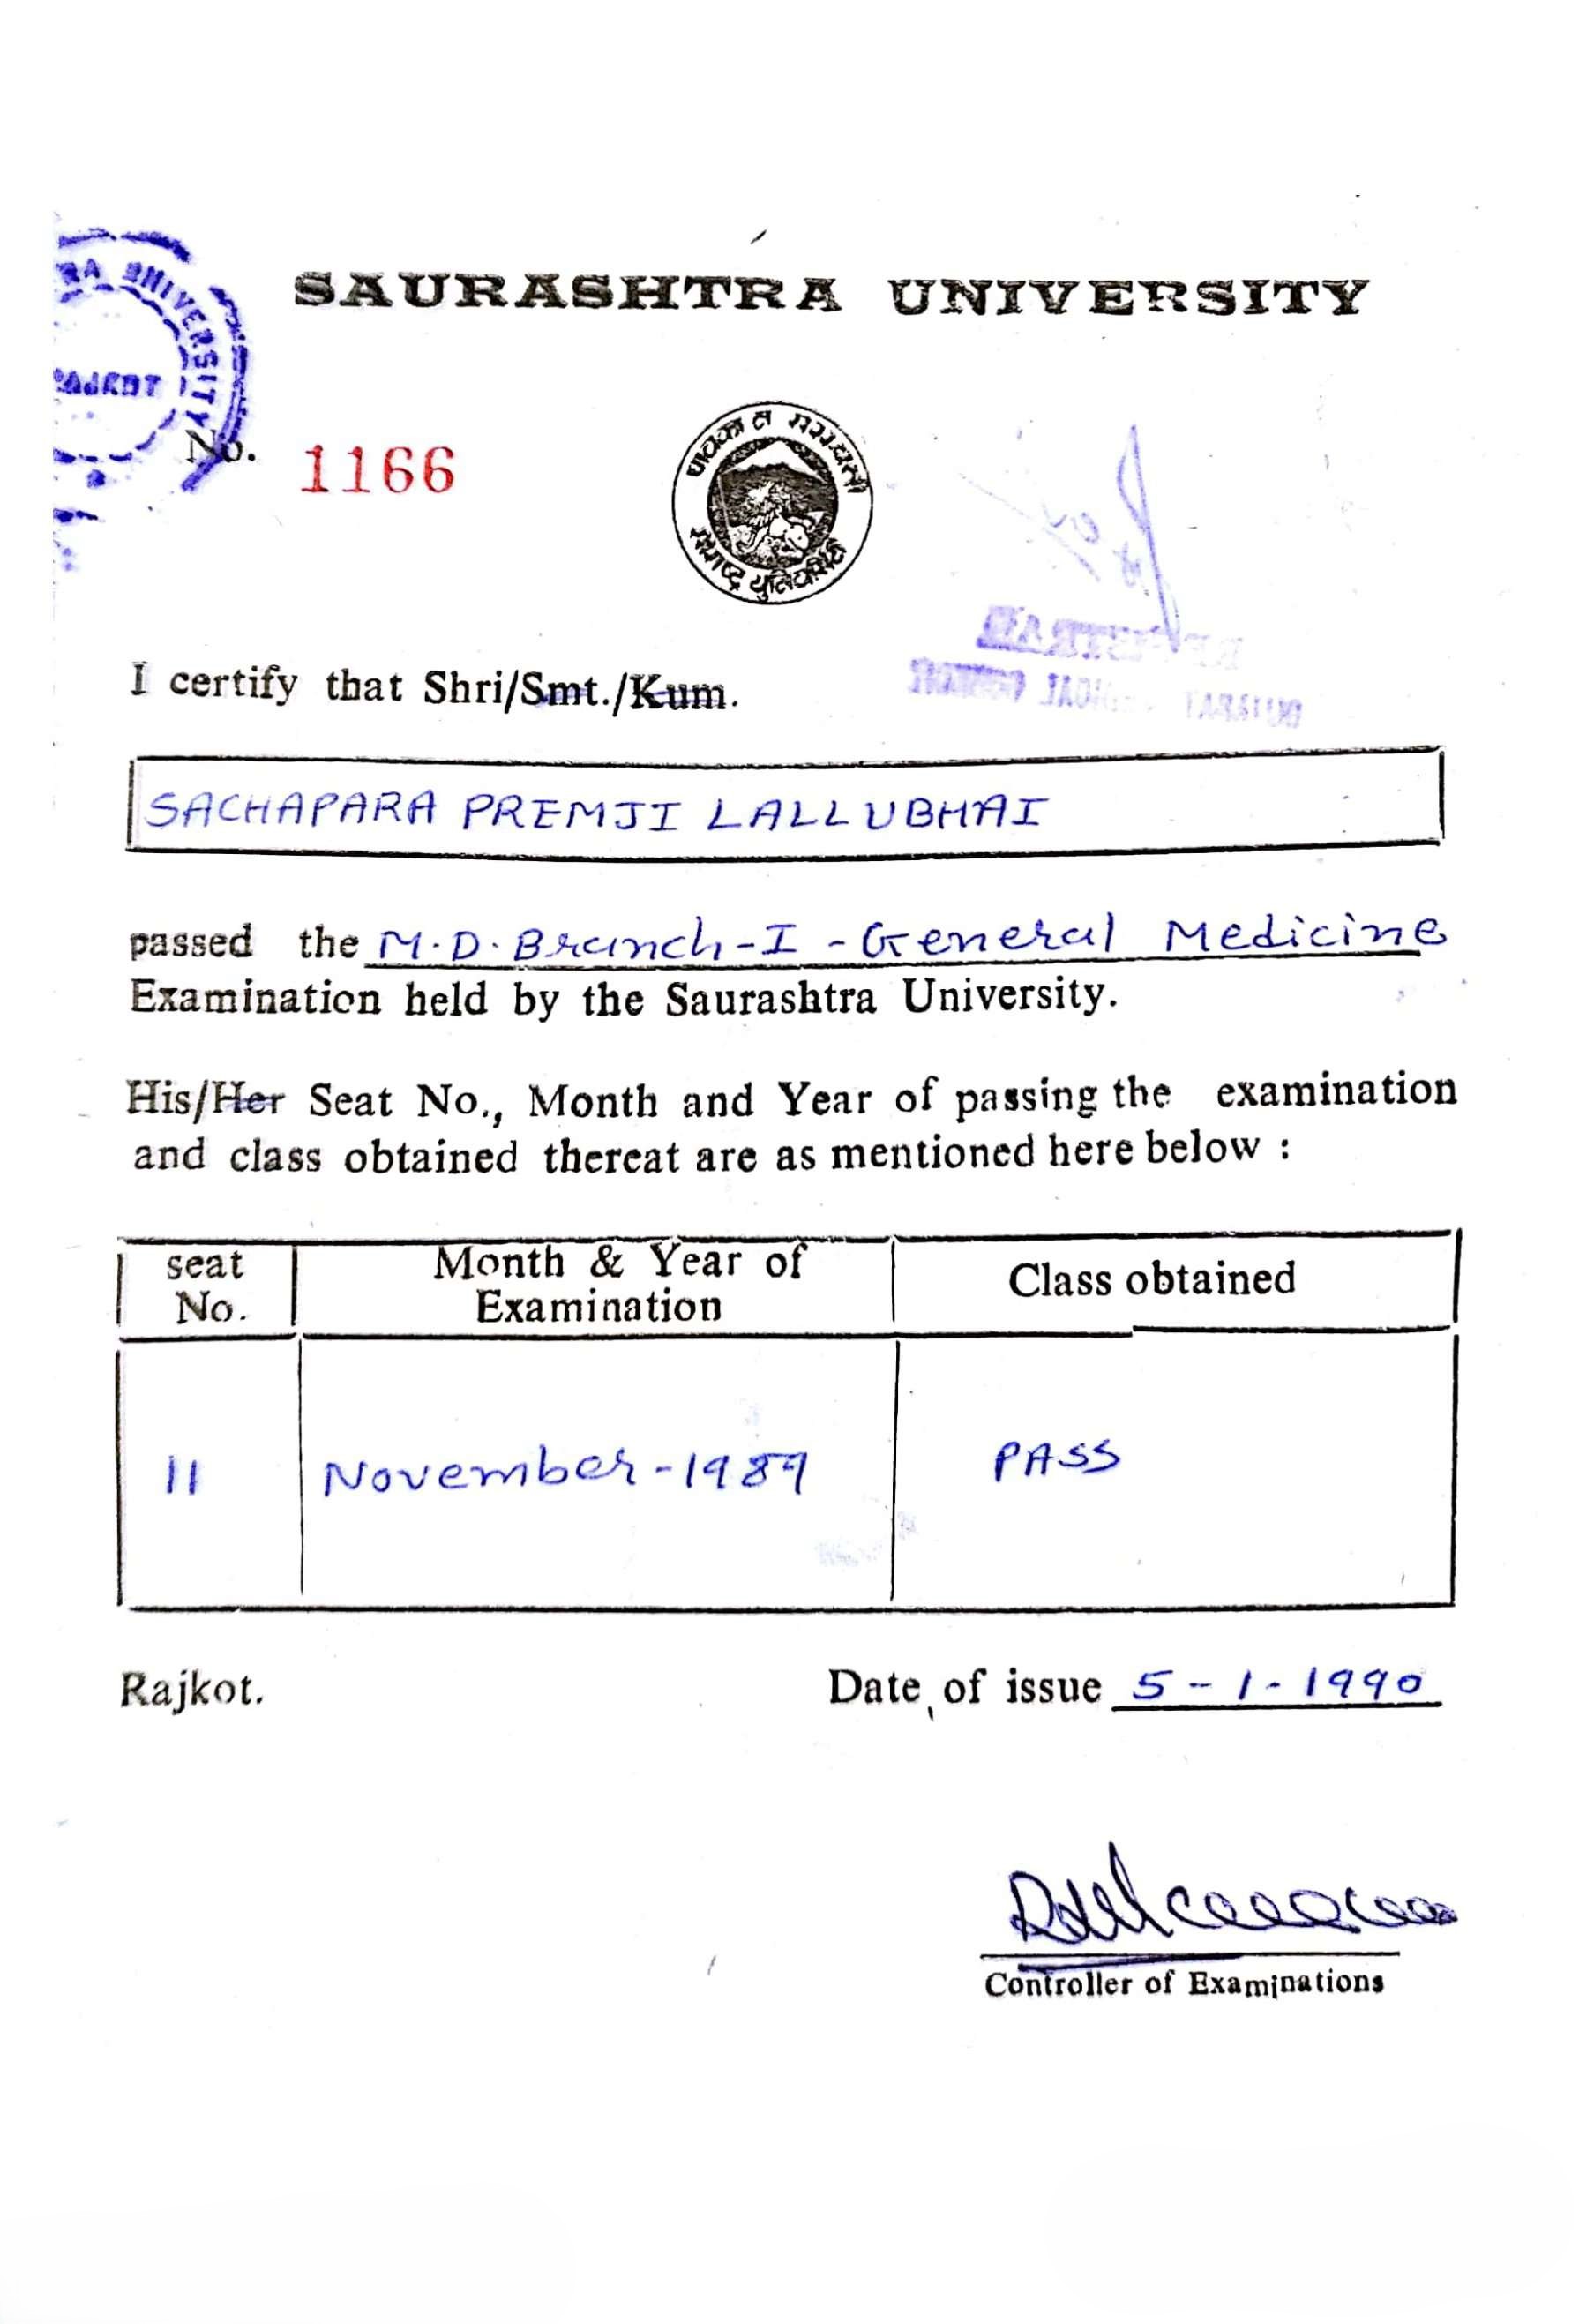 SAURASHTRA UNIVERSITY
RA UNIVERSITY
RAJKOT
No. 1166
I certify that Shri/Smt./Kum.
SACHAPARA PREMJI LALLUBHAI
passed the M.D. Branch-I - General Medicine
Examination held by the Saurashtra University.
His/Her Seat No., Month and Year of passing the examination
and class obtained thereat are as mentioned here below :
seat No. Month & Year of Examination Class obtained
11 November-1989 PASS
Rajkot. Date of issue 5-1-1990
Controller of Examinations